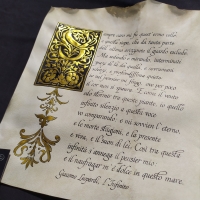 Sempre caro mi fu quest'ermo colle
e questa siepe, che da tanta parte
dell'ultimo orizzonte il guardo esclude.
Ma sedendo e mirando, interminati
spazi di là da quella, e sovrumani
silenzi, e profondissima quiete
io nel pensier mi fingo; ove per poco
il cor non si spaura. E come il vento
odo stormir tra queste piante, io quello
infinito silenzio a questa voce
vo comparando: e mi sovvien l'eterno,
e le morte stagioni, e la presente
e viva, e il suon di lei. Così tra questa
infinità s'annega il pensier mio:
e il naufragar m'è dolce in questo mare.
Giacomo Leopardi, L'Infinito